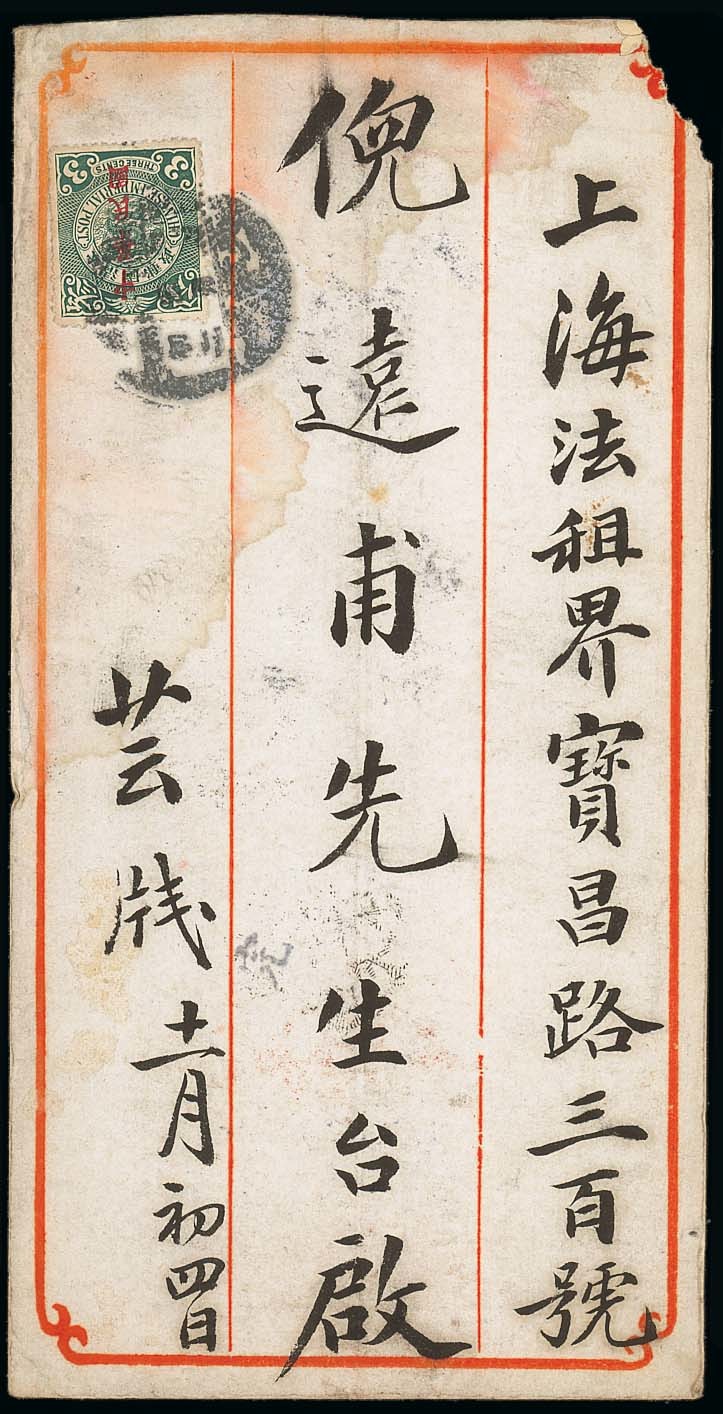 上海法租界寶昌路三百號
倪遠甫先生台啟
芸牋 十一月初四日
3 THREE CENTS 3
CHINESE IMPERIAL POST
中華民國